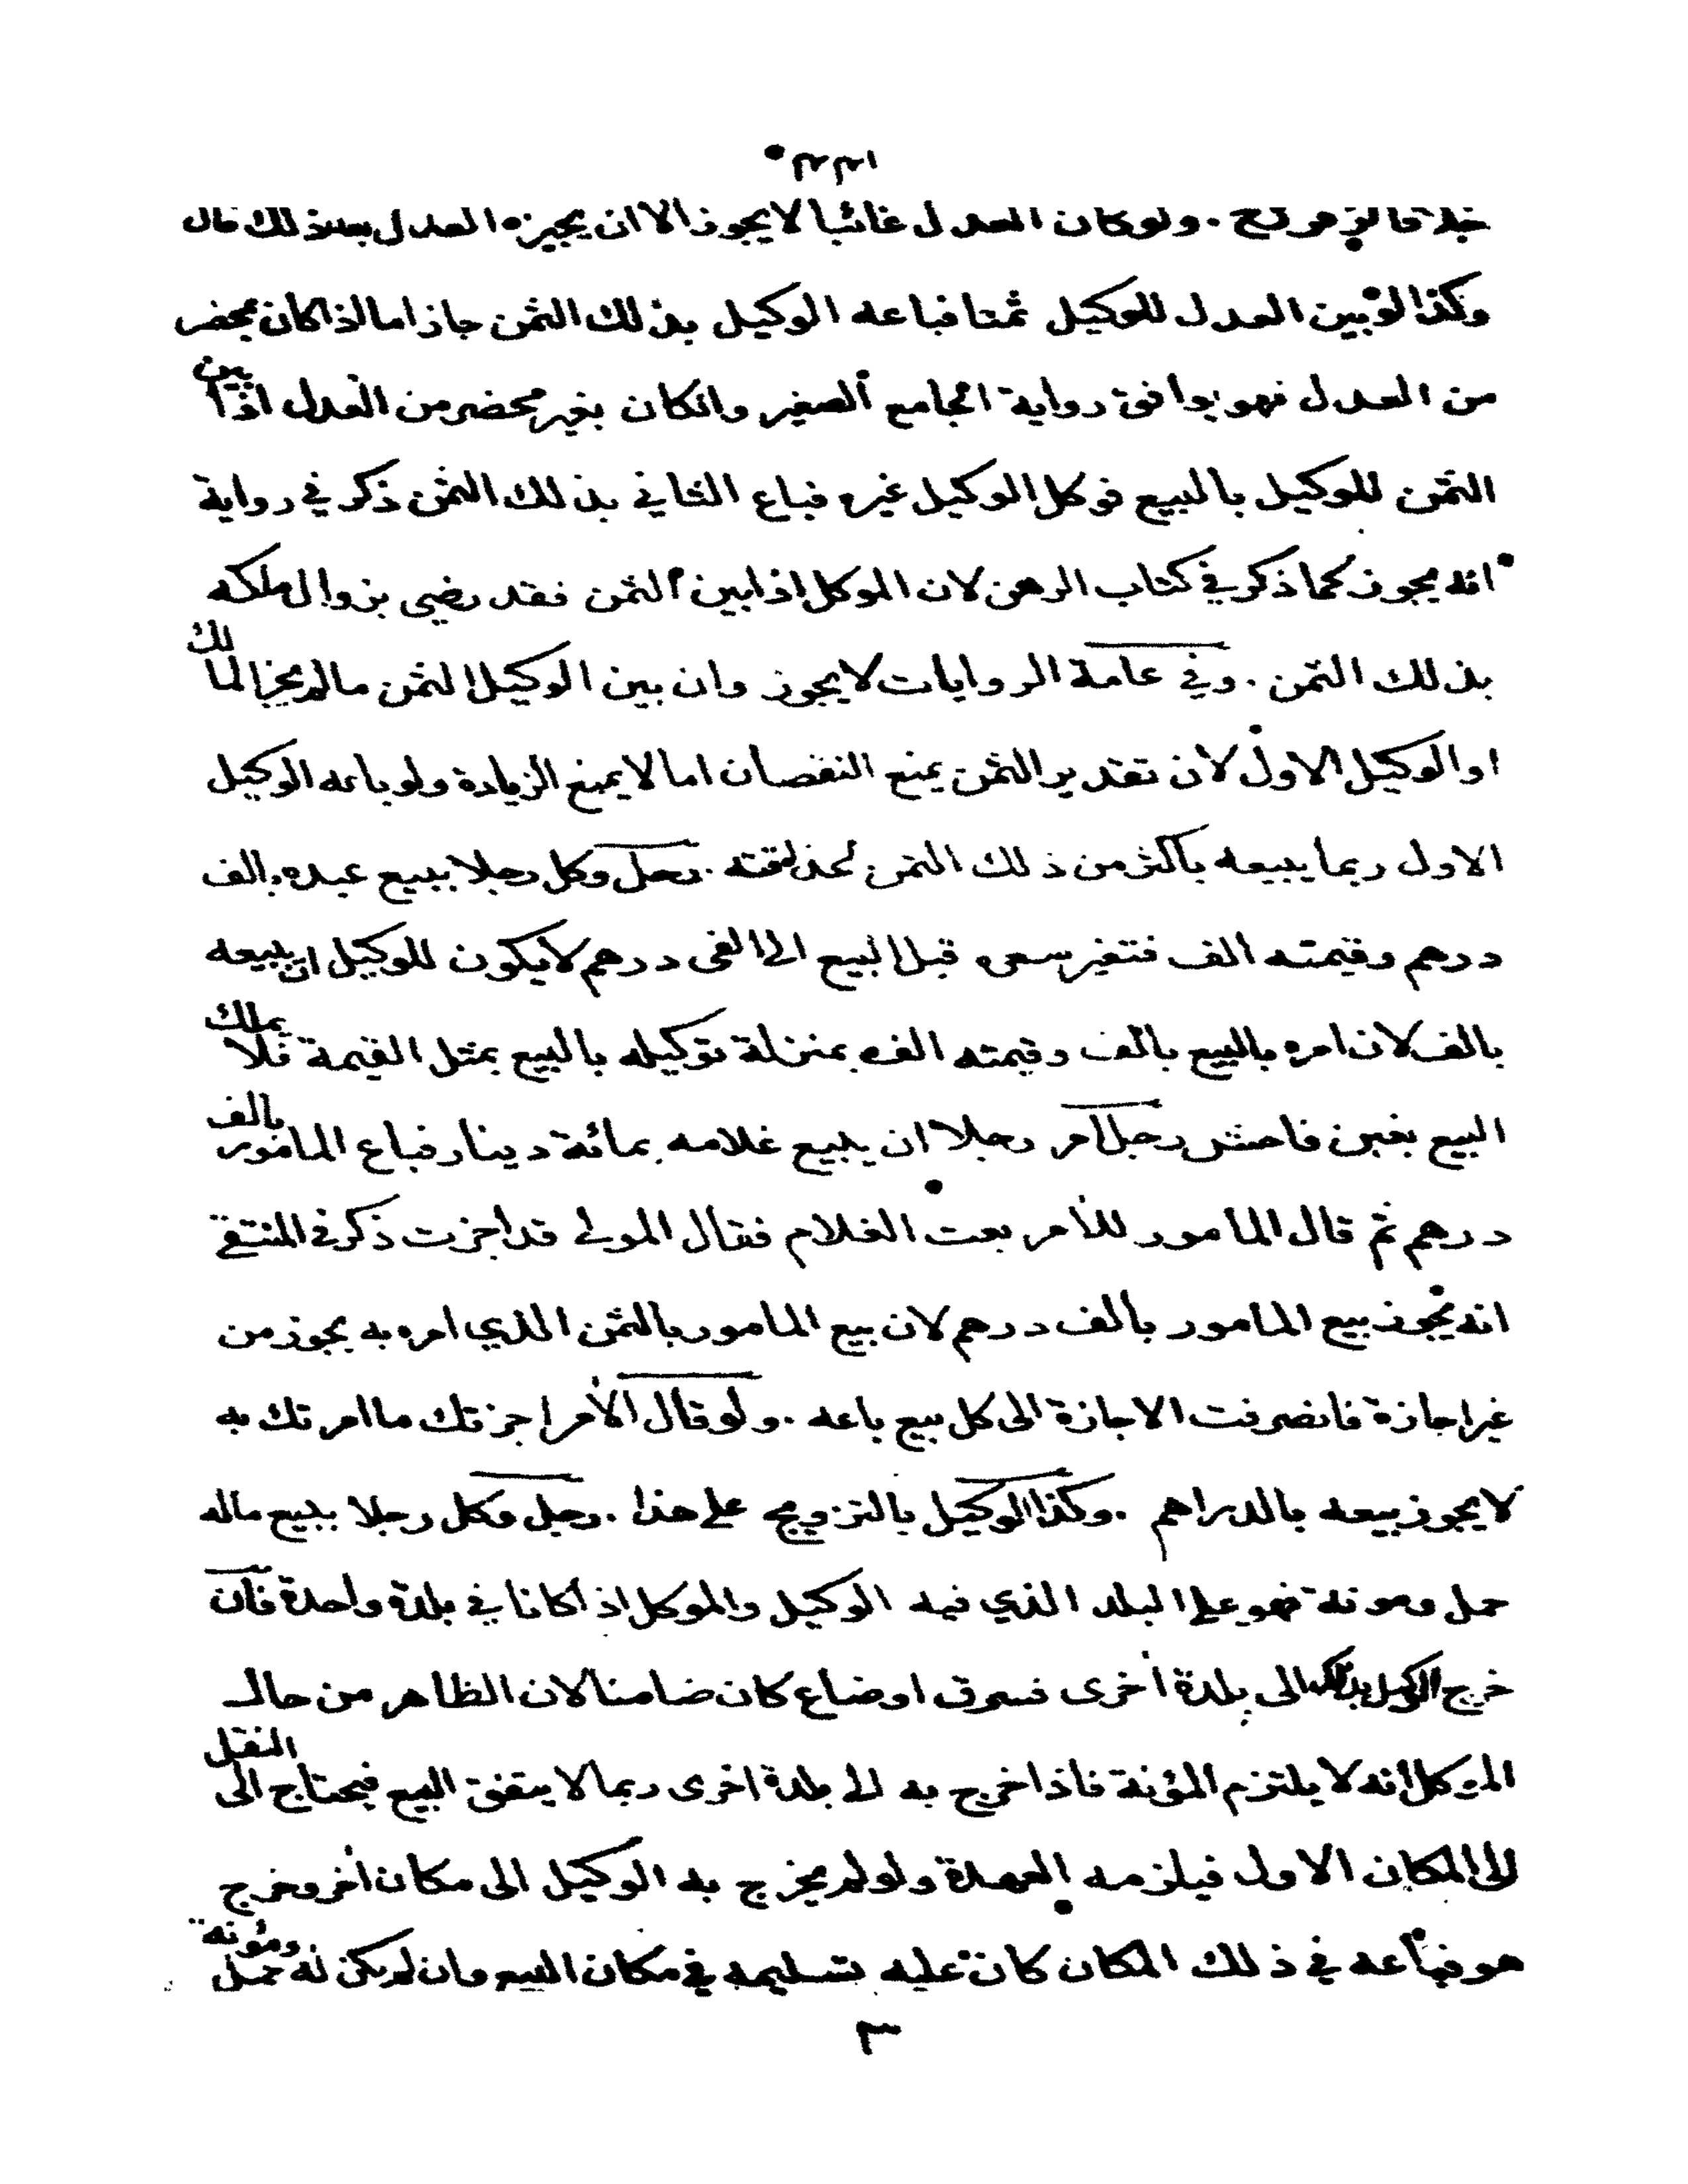 ١٣٣
خلافا لزفر رح . ولو كان العدل غائبا لا يجوز الا ان يجيزه العدل بعد ذلك قال
وكذا لو بين العدل للوكيل ثمنا فباعه الوكيل بذلك الثمن جاز اما اذا كان بمحضر
من العدل فهو يوافق رواية الجامع الصغير وان كان بغير محضر من العدل اذا بين
الثمن للوكيل بالبيع فوكل الوكيل غيره فباع الثاني بذلك الثمن ذكر في رواية
انه يجوز كما ذكر في كتاب الرهن لان الموكل اذا بين الثمن فقد رضي بزوال ملكه
بذلك الثمن . وفي عامة الروايات لا يجوز وان بين الوكيل الثمن ما لم يجز المالك
او الوكيل الاول لان تقدير الثمن يمنع النقصان اما لا يمنع الزيادة ولو باعه الوكيل
الاول ربما يبيعه باكثر من ذلك الثمن لحذاقته . رجل وكل رجلا ببيع عبده بالف
درهم وقيمته الف فتغير سعره قبل البيع الى الفي درهم لا يكون للوكيل ان يبيعه
بالف لان امره بالبيع بالف وقيمته الف بمنزلة توكيله بالبيع بمثل القيمة فلا يملك
البيع بغبن فاحش رجل امر رجلا ان يبيع غلامه بمائة دينار فباع المامور بالف
درهم ثم قال المامور للأمر بعت الغلام فقال المولى قد اجزت ذكر في المنتقى
انه يجوز بيع المامور بالف درهم لان بيع المامور بالثمن الذي امره به يجوز من
غير اجازة فانصرفت الاجازة الى كل بيع باعه . ولو قال الأمر اجزتك ما امرتك به
لا يجوز بيعه بالدراهم . وكذا الوكيل بالتزويج على هذا . رجل وكل رجلا ببيع ماله
حمل ومونة فهو على البلد الذي فيه الوكيل والموكل اذا كانا في بلدة واحدة فان
خرج الوكيل بذلك الى بلدة أخرى فسرق او ضاع كان ضامنا لان الظاهر من حال
الموكل انه لا يلتزم المؤنة فاذا خرج به الى بلدة اخرى ربما لا يتفق البيع فيحتاج الى النقل
الى المكان الاول فيلزمه العهدة ولو لم يخرج به الوكيل الى مكان أخر وخرج
هو فباعه في ذلك المكان كان عليه تسليمه في مكان البيع وان لم يكن له حمل ومؤنة
٣